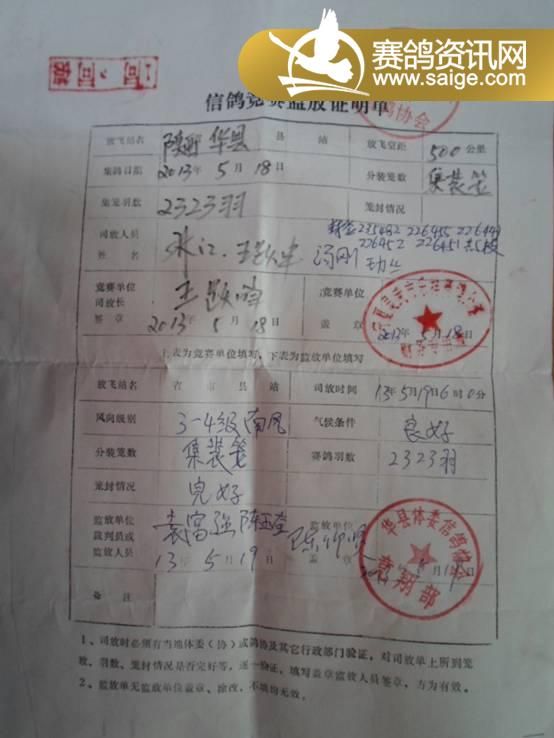 赛鸽资讯网
www.saige.com
信鸽竞赛监放证明单
鸽协会
放飞站名 陕西 华县 县 站 放飞空距 500公里
集鸽日期 2013年 5月 18日 分装笼数 集装笼
集笼羽数 2323羽 笼封情况
司放人员
姓名
竞赛单位
司放长
签章 2013年 5月 18日
竞赛单位
盖章 2013年 5月 18日
上表为竞赛单位填写,下表为监放单位填写
放飞站名 省 市 县 站 司放时间 13年5月19日6时0分
风向级别 3-4级南风 气候条件 良好
分装笼数 集装笼 赛鸽羽数 2323羽
笼封情况 完好
监放单位
裁判员或
监放人员 袁富强
13年 5月 19日
监放单位
盖章
华县体委信鸽协会
竞翔部
备注
1、司放时必须有当地体委(协)或鸽协及其它行政部门验证,对司放单上所到笼
数、羽数、笼封情况是否完好等,逐一验证,填写盖章监放人员签章,方为有效。
2、监放单无监放单位盖章、涂改、不填均无效。